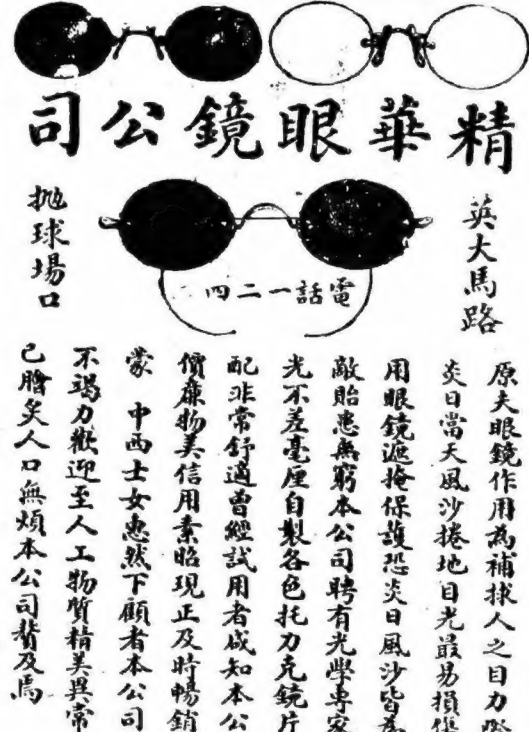 精華眼鏡公司
英大馬路
電話一二四
拋球場口
原夫眼鏡作用為補救人之目力
炎日當天風沙捲地目光最易損傷
用眼鏡遮掩保護恐炎日風沙皆為
敵貽患無窮本公司聘有光學專家
光不差毫厘自製各色托力克鏡片
配非常舒適曾經試用者咸知本公
價廉物美信用素昭現正及時暢銷
蒙 中西士女惠然下顧者本公司
不竭力歡迎至人工物質精美異常
已膾炙人口無煩本公司贅及焉